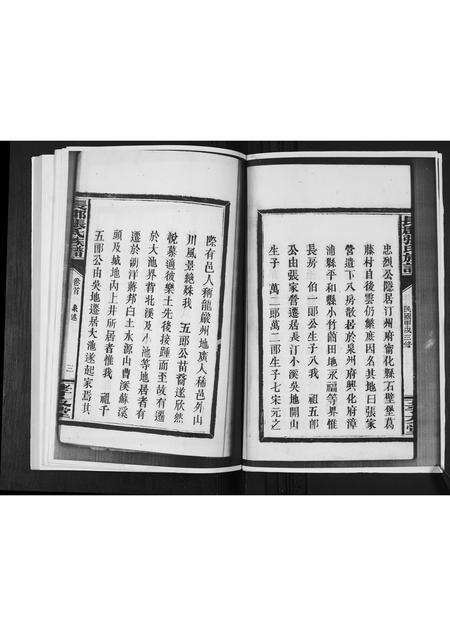 忠烈公隱居汀州府甯化縣石壁堡葛
藤村自後雲仍繁庶因名其地曰張家
營遺下八房散居於泉州府興化府漳
浦縣平和縣小竹蔄田地永福等界惟
長房 伯一郎公生子八我 祖五郎
公由張家營遷居長汀小溪吳地開山
生子 萬二郎萬二郎生子七宋元之
際有邑人稱龍巖州地廣人稀邑外山
川風景絕殊我 五郎公苗裔遂欣然
悅慕適彼樂土先後接踵而至故有遷
於大池界背北溪及小池等地居者有
遷於湖洋蔣邦白土水源內曹溪蘇溪
頭及城地內上井所居者惟我 祖千
五郎公由吳地遷居大池遂起家焉其
卷首 來述 三